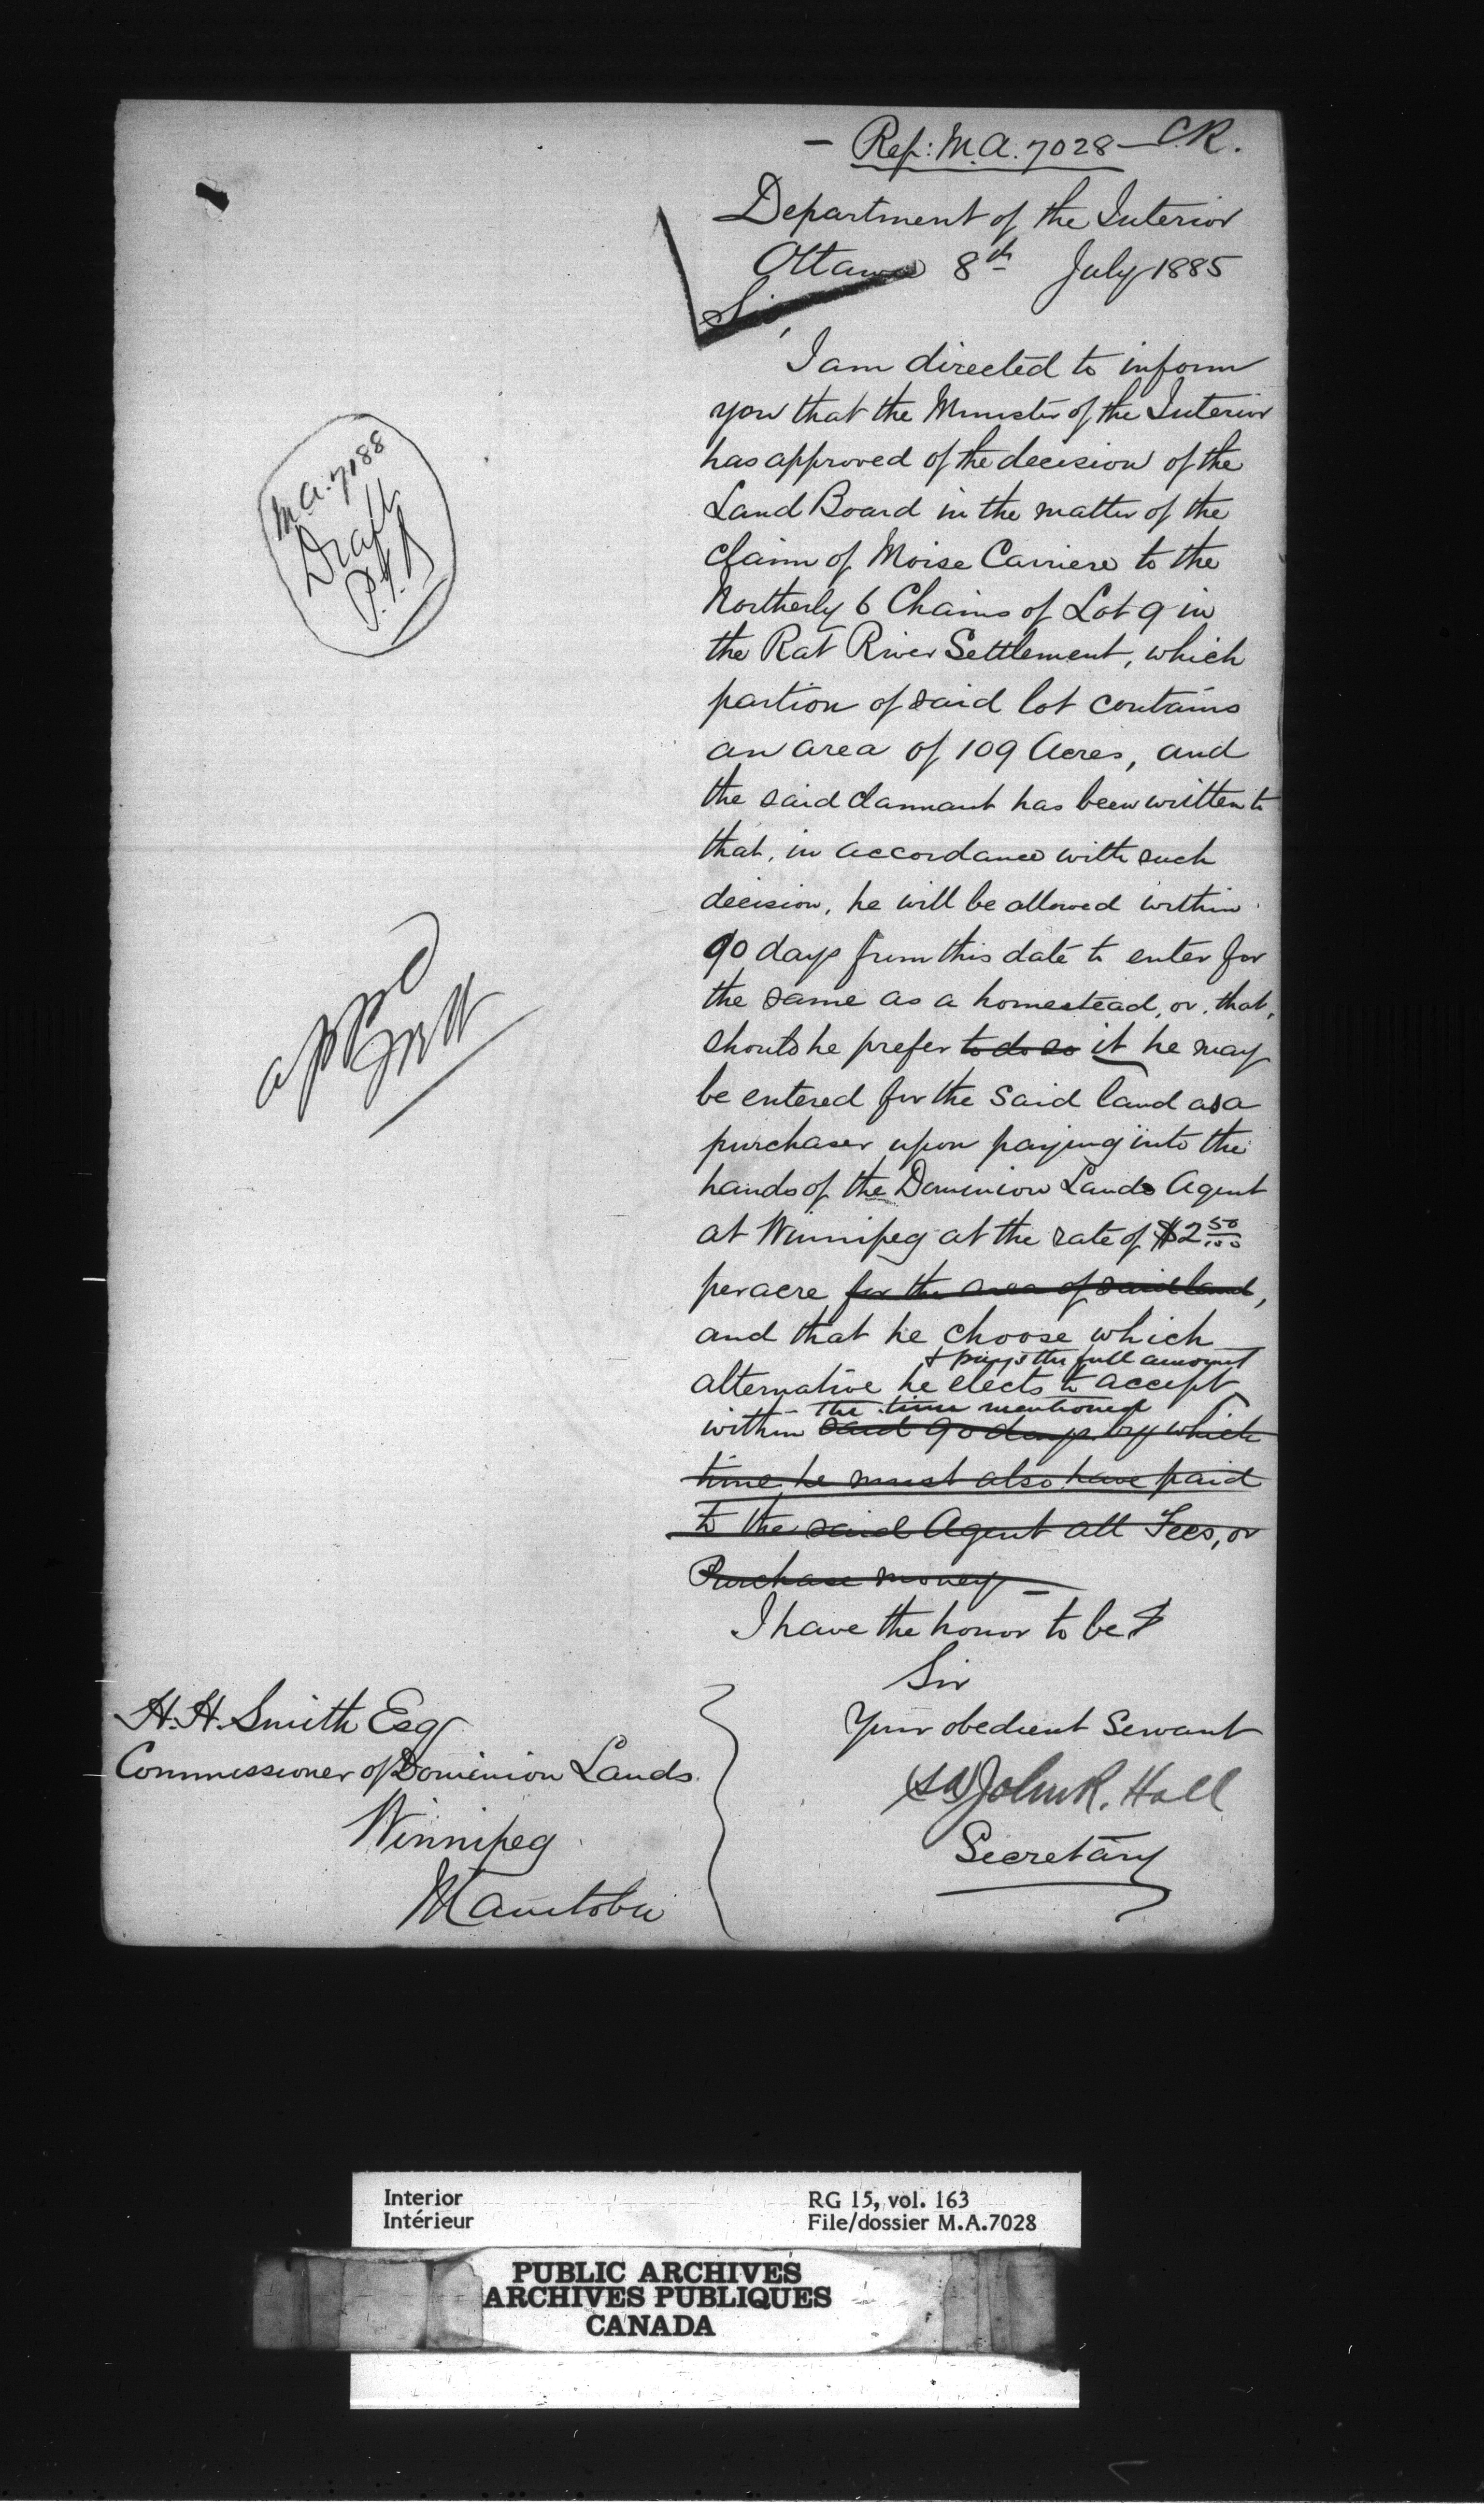 — Ref: M.A. 7028 — C.R.
Department of the Interior
Ottawa 8th July 1885
Sir,
I am directed to inform
you that the Minister of the Interior
has approved of the decision of the
Land Board in the matter of the
claim of Moise Carriere to the
Northerly 6 Chains of Lot 9 in
the Rat River Settlement, which
portion of said lot contains
an area of 109 Acres, and
the said claimant has been written to
that, in accordance with such
decision, he will be allowed within
90 days from this date to enter for
the same as a homestead, or, that,
should he prefer to do so it he may
be entered for the said land as a
purchaser upon paying into the
hands of the Dominion Lands Agent
at Winnipeg at the rate of $2 50/100
per acre for the area of said land,
and that he choose which
& pays the full amount
alternative he elects to accept
the time mentioned
within said 90 days by which
time he must also have paid
to the said Agent all Fees, or
Purchase money —
I have the honor to be &
Sir
Your obedient Servant
(sd) John R. Hall
Secretary
H. H. Smith Esq
Commissioner of Dominion Lands
Winnipeg
Manitoba
M.A. 7188
Draft
appd
Interior
Intérieur
RG 15, vol. 163
File/dossier M.A.7028
PUBLIC ARCHIVES
ARCHIVES PUBLIQUES
CANADA